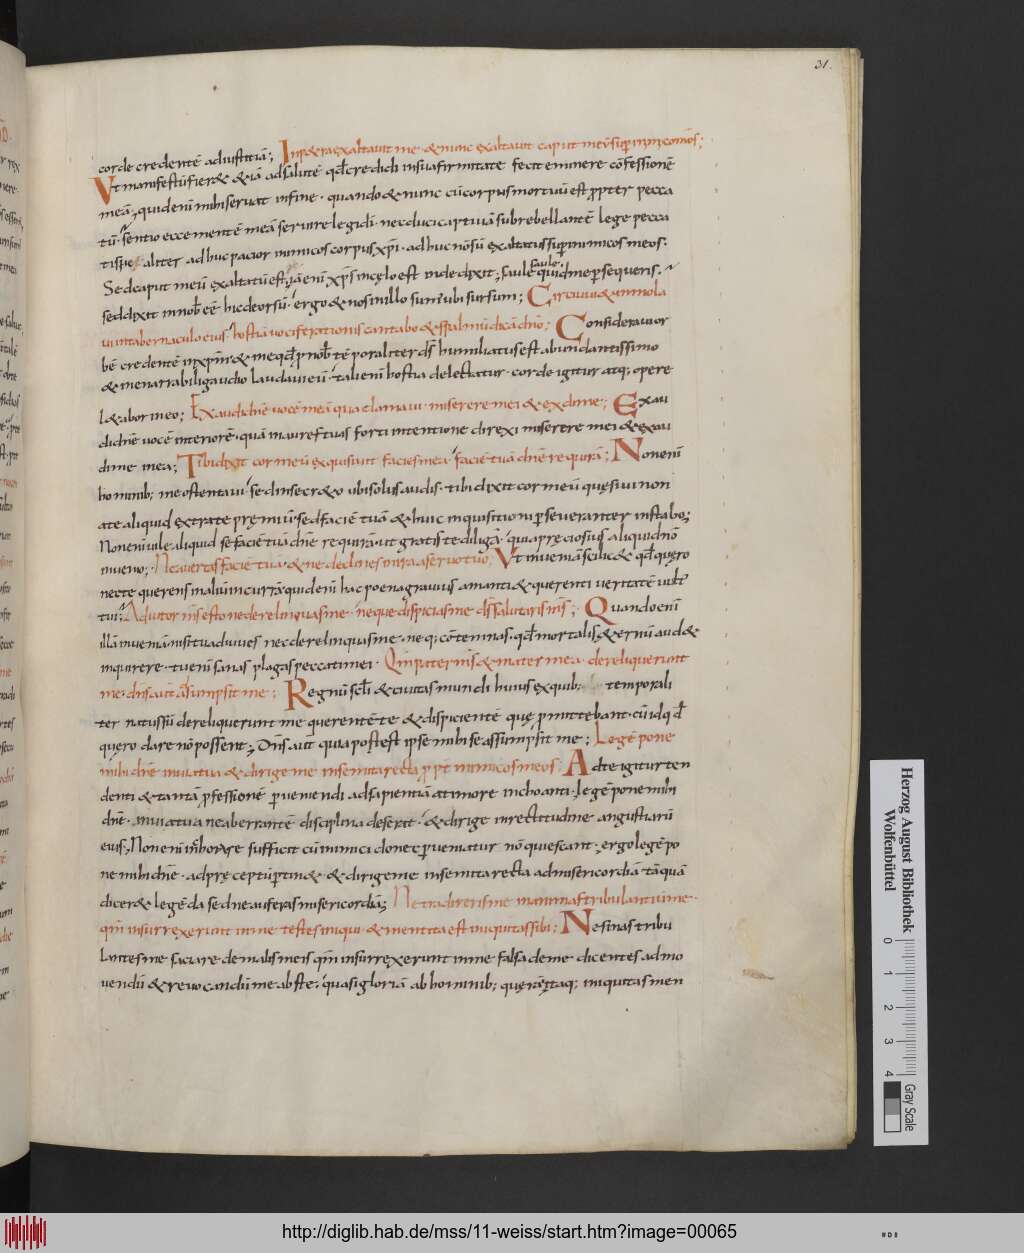 31.
corde credentē adiustitiā; In petra exaltauit me · & nunc exaltauit caput meū sup inimicos meos;
Vt manifestū fier& & iā ad salutē qd credidi in sua firmitate fecit eminere cōfessionē
meā; qui deniī mihi seruat in fine · quando & nunc cū corpus mortuū est ppter pecca
tū; sentio ecce mentē meā seruire legi dī · nec duci captiuā sub rebellante lege pecca
ti spe aliter adhuc patior inimicos corpus xpī · adhuc nō sū exaltatus sup inimicos meos ·
Sed caput meū exaltatū est; iā enī xps in cęlo est inde dixit; saule saule quid me persequeris ·
sed dixit in nob eē hic deorsū; ergo & nos in illo sum ubi sursum; Circuiui & immola
ui in tabernaculo eius · hostiā uociferationis cantabo & psalmū dicā dno; Considerauior
bē credente in xpm & me qd p nob temporaliter ds humiliatus est abundantissimo
& inenarrabili gaudio laudaui eū; tali enī hostia delectatur · corde igitur atq; opere
l& abor in eo; Exaudi dnē uocē meā qua clamaui · miserere mei & exaudi me; Exau
di dnē uocē interiorē · quā in aures tuas forti intentione direxi miserere mei & exau
di me in ea; Tibi dixit cor meū exquisiuit facies mea; faciē tuā dnē requirā; Non enī
hominib; me ostentaui · sed in secr&o ubi solus audis · tibi dixit cor meū quęsiui non
a te aliquid extra te pręmiū · sed faciē tuā & huic inquisitioni perseueranter instabo;
Non enī uile aliquid sed faciē tuā dnē requirā · ut gratis te diligā · quia pręciosius aliquid nō
inuenio; Ne auertas faciē tuā · & ne declines in ira a seruo tuo; Vt inueniā scilic& qd quęro
tui; Adiutor mš esto ne derelinquas me · neque dispicias me ds salutaris mš; Quando enī
illā inueniā nisi tu adiuues nec derelinquas me · neq; cōtemnas · qd mortalis · & ęternū aud&
inquirere · tu enī sanas plagas peccati mei · Qm pater mš & mater mea · dereliquerunt
me · dns aut assumpsit me; Regnū scli & ciuitas mundi huius ex quib; temporali
ter natus sū dereliquerunt me querentē te & dispicientē quę pmittebant · cū id qd
quęro dare nō possent; Dns aut quia potest ipse mihi se assumpsit me; Legē pone
mihi dnē in uia tua & dirige me in semita recta ppt inimicos meos; Ad te igitur ten
denti & tantā pfessionē p ueniendi ad sapientiā a timore inchoanti · legē pone mihi
dnē · in uia tua ne aberrantē disciplina deserat · & dirige in rectitudine angustiarū
eius; Non enī in hoc re sufficit cū inimici donec p ueniatur nō quiescant · ergo legē po
ne mihi dnē · ad pręceptū ptin& · & dirige me in semita recta ad misericordiā tāquā
dicer& legē da sed ne auferas misericordiā; Ne tradideris me in animas tribulantiū me ·
qm insurrexerunt in me testes iniqui · & mentita est iniquitas sibi; Ne sinas tribu
lantes me saciare de malis meis qm insurrexerunt in me falsa de me dicentes ad mo
uendū & reuocandū me abs te · quasi gloriā ab hominib; quęrā · itaq; iniquitas men
Herzog August Bibliothek
Wolfenbüttel
0 1 2 3 4
Gray Scale
http://diglib.hab.de/mss/11-weiss/start.htm?image=00065